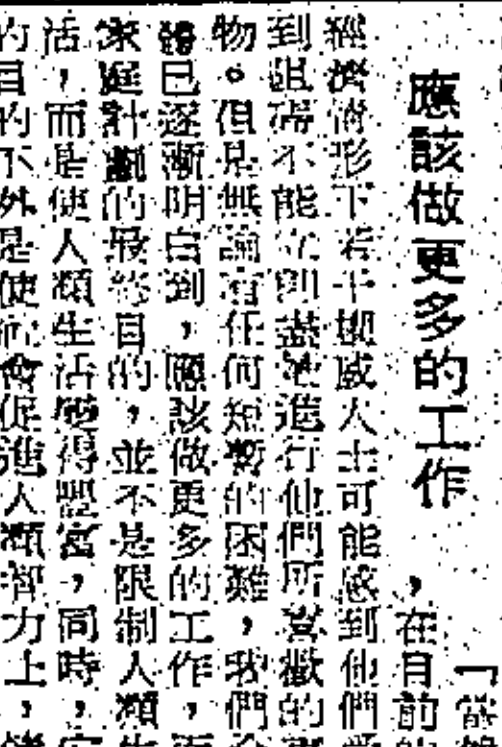 「當
應該做更多的工作，在目前
經濟情形下若干權威人士可能感到他們
到阻碍不能立即盡地進行他們所喜歡的
物。但是無論有任何短暫的困難，我們
已逐漸明白到，應該做更多的工作，而
家庭計劃的最終目的，並不是限制人類
活，而是使人類生活獲得豐富，同時，
的目的不外是使社會促進人類智力上，